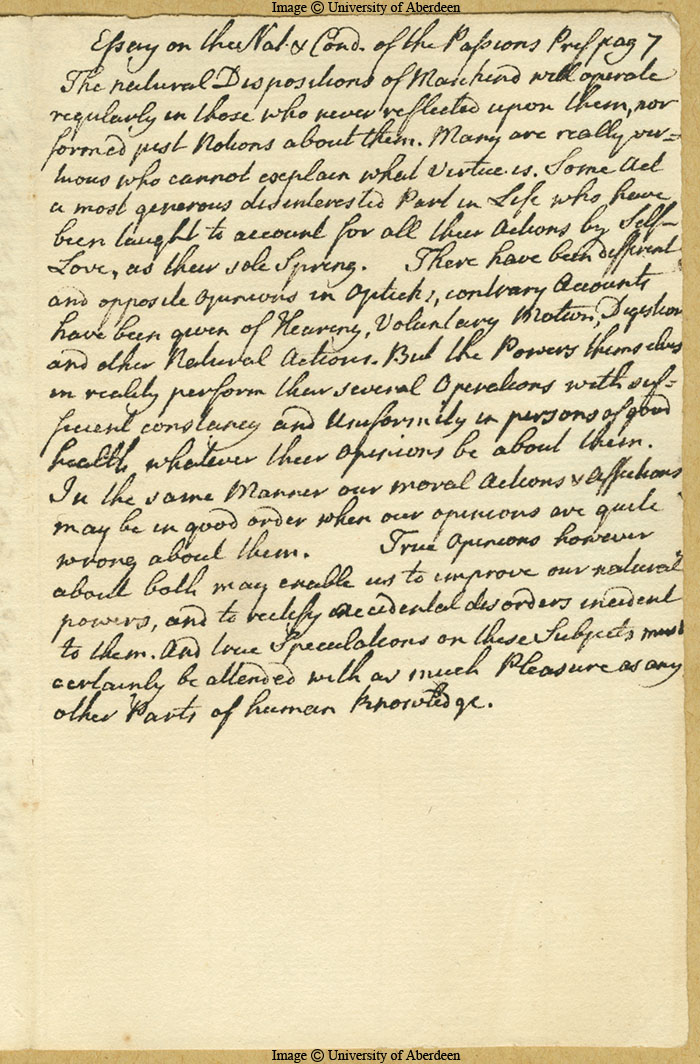 Image © University of Aberdeen
Essay on the Nat. & Cond. of the Passions Pref pag 7
The natural Dispositions of Mankind will operate
regularly in those who never reflected upon them, nor
formed just Notions about them. Many are really vir=
tuous who cannot explain what Virtue is. Some Act
a most generous disinterested Part in Life who have
been taught to account for all their Actions by Self-
Love, as their sole Spring. There have been different
and opposite opinions in Opticks, contrary Accounts
have been given of Hearing, Voluntary Motion, Digestion
and other Natural Actions. But the Powers themselves
in reality perform their several Operations with suf=
ficient constancy and Uniformity in persons of good
health, whatever their opinions be about them.
In the same Manner our moral Actions & Affections
may be in good order when our opinions are quite
wrong about them. True Opinions however
about both may enable us to improve our natural
powers, and to rectify accidental disorders incident
to them. And true Speculations on these Subjects must
certainly be attended with as much Pleasure as any
other Parts of human Knowledge.
Image © University of Aberdeen